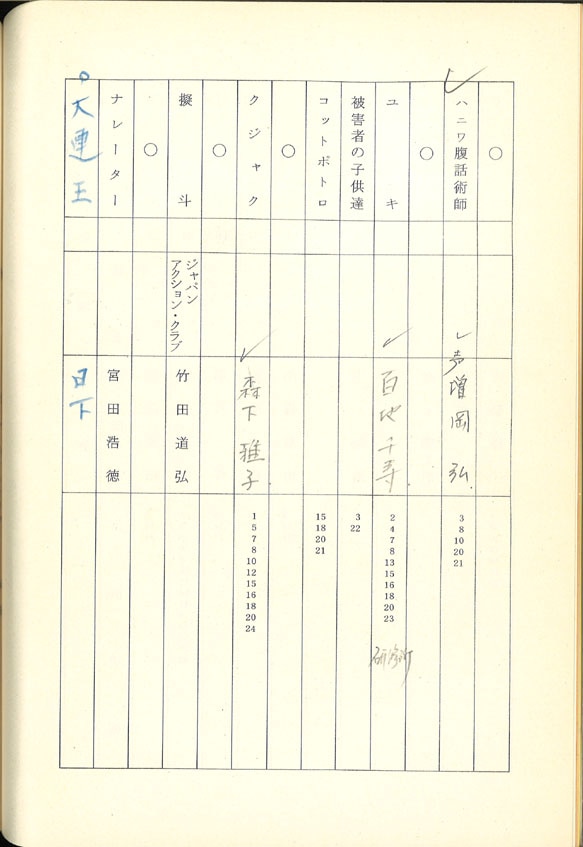 〇
ハニワ腹話術師
声 増岡 弘
3
8
10
20
21
〇
ユキ
百地千寿
2
4
7
8
13
15
16
18
20
23
被害者の子供達
3
22
コットポトロ
15
18
20
21
〇
クジャク
森下雅子
1
5
7
8
10
12
15
16
18
20
24
〇
擬斗
ジャパン
アクション・クラブ
竹田道弘
〇
ナレーター
宮田浩徳
大連王
日下